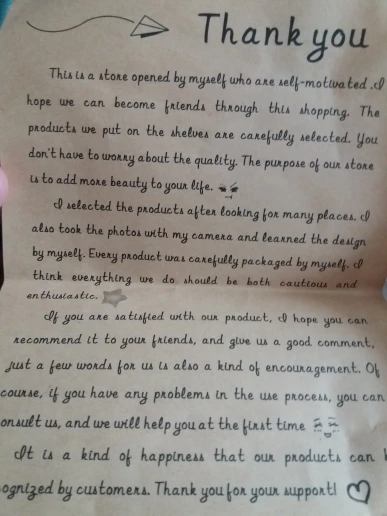 Thank you
This is a store opened by myself who are self-motivated .I
hope we can become friends through this shopping. The
products we put on the shelves are carefully selected. You
don't have to worry about the quality. The purpose of our store
is to add more beauty to your life.
I selected the products after looking for many places. I
also took the photos with my camera and learned the design
by myself. Every product was carefully packaged by myself. I
think everything we do should be both cautious and
enthusiastic.
If you are satisfied with our product, I hope you can
recommend it to your friends, and give us a good comment,
just a few words for us is also a kind of encouragement. Of
course, if you have any problems in the use process, you can
onsult us, and we will help you at the first time
It is a kind of happiness that our products can
ognized by customers. Thank you for your support!